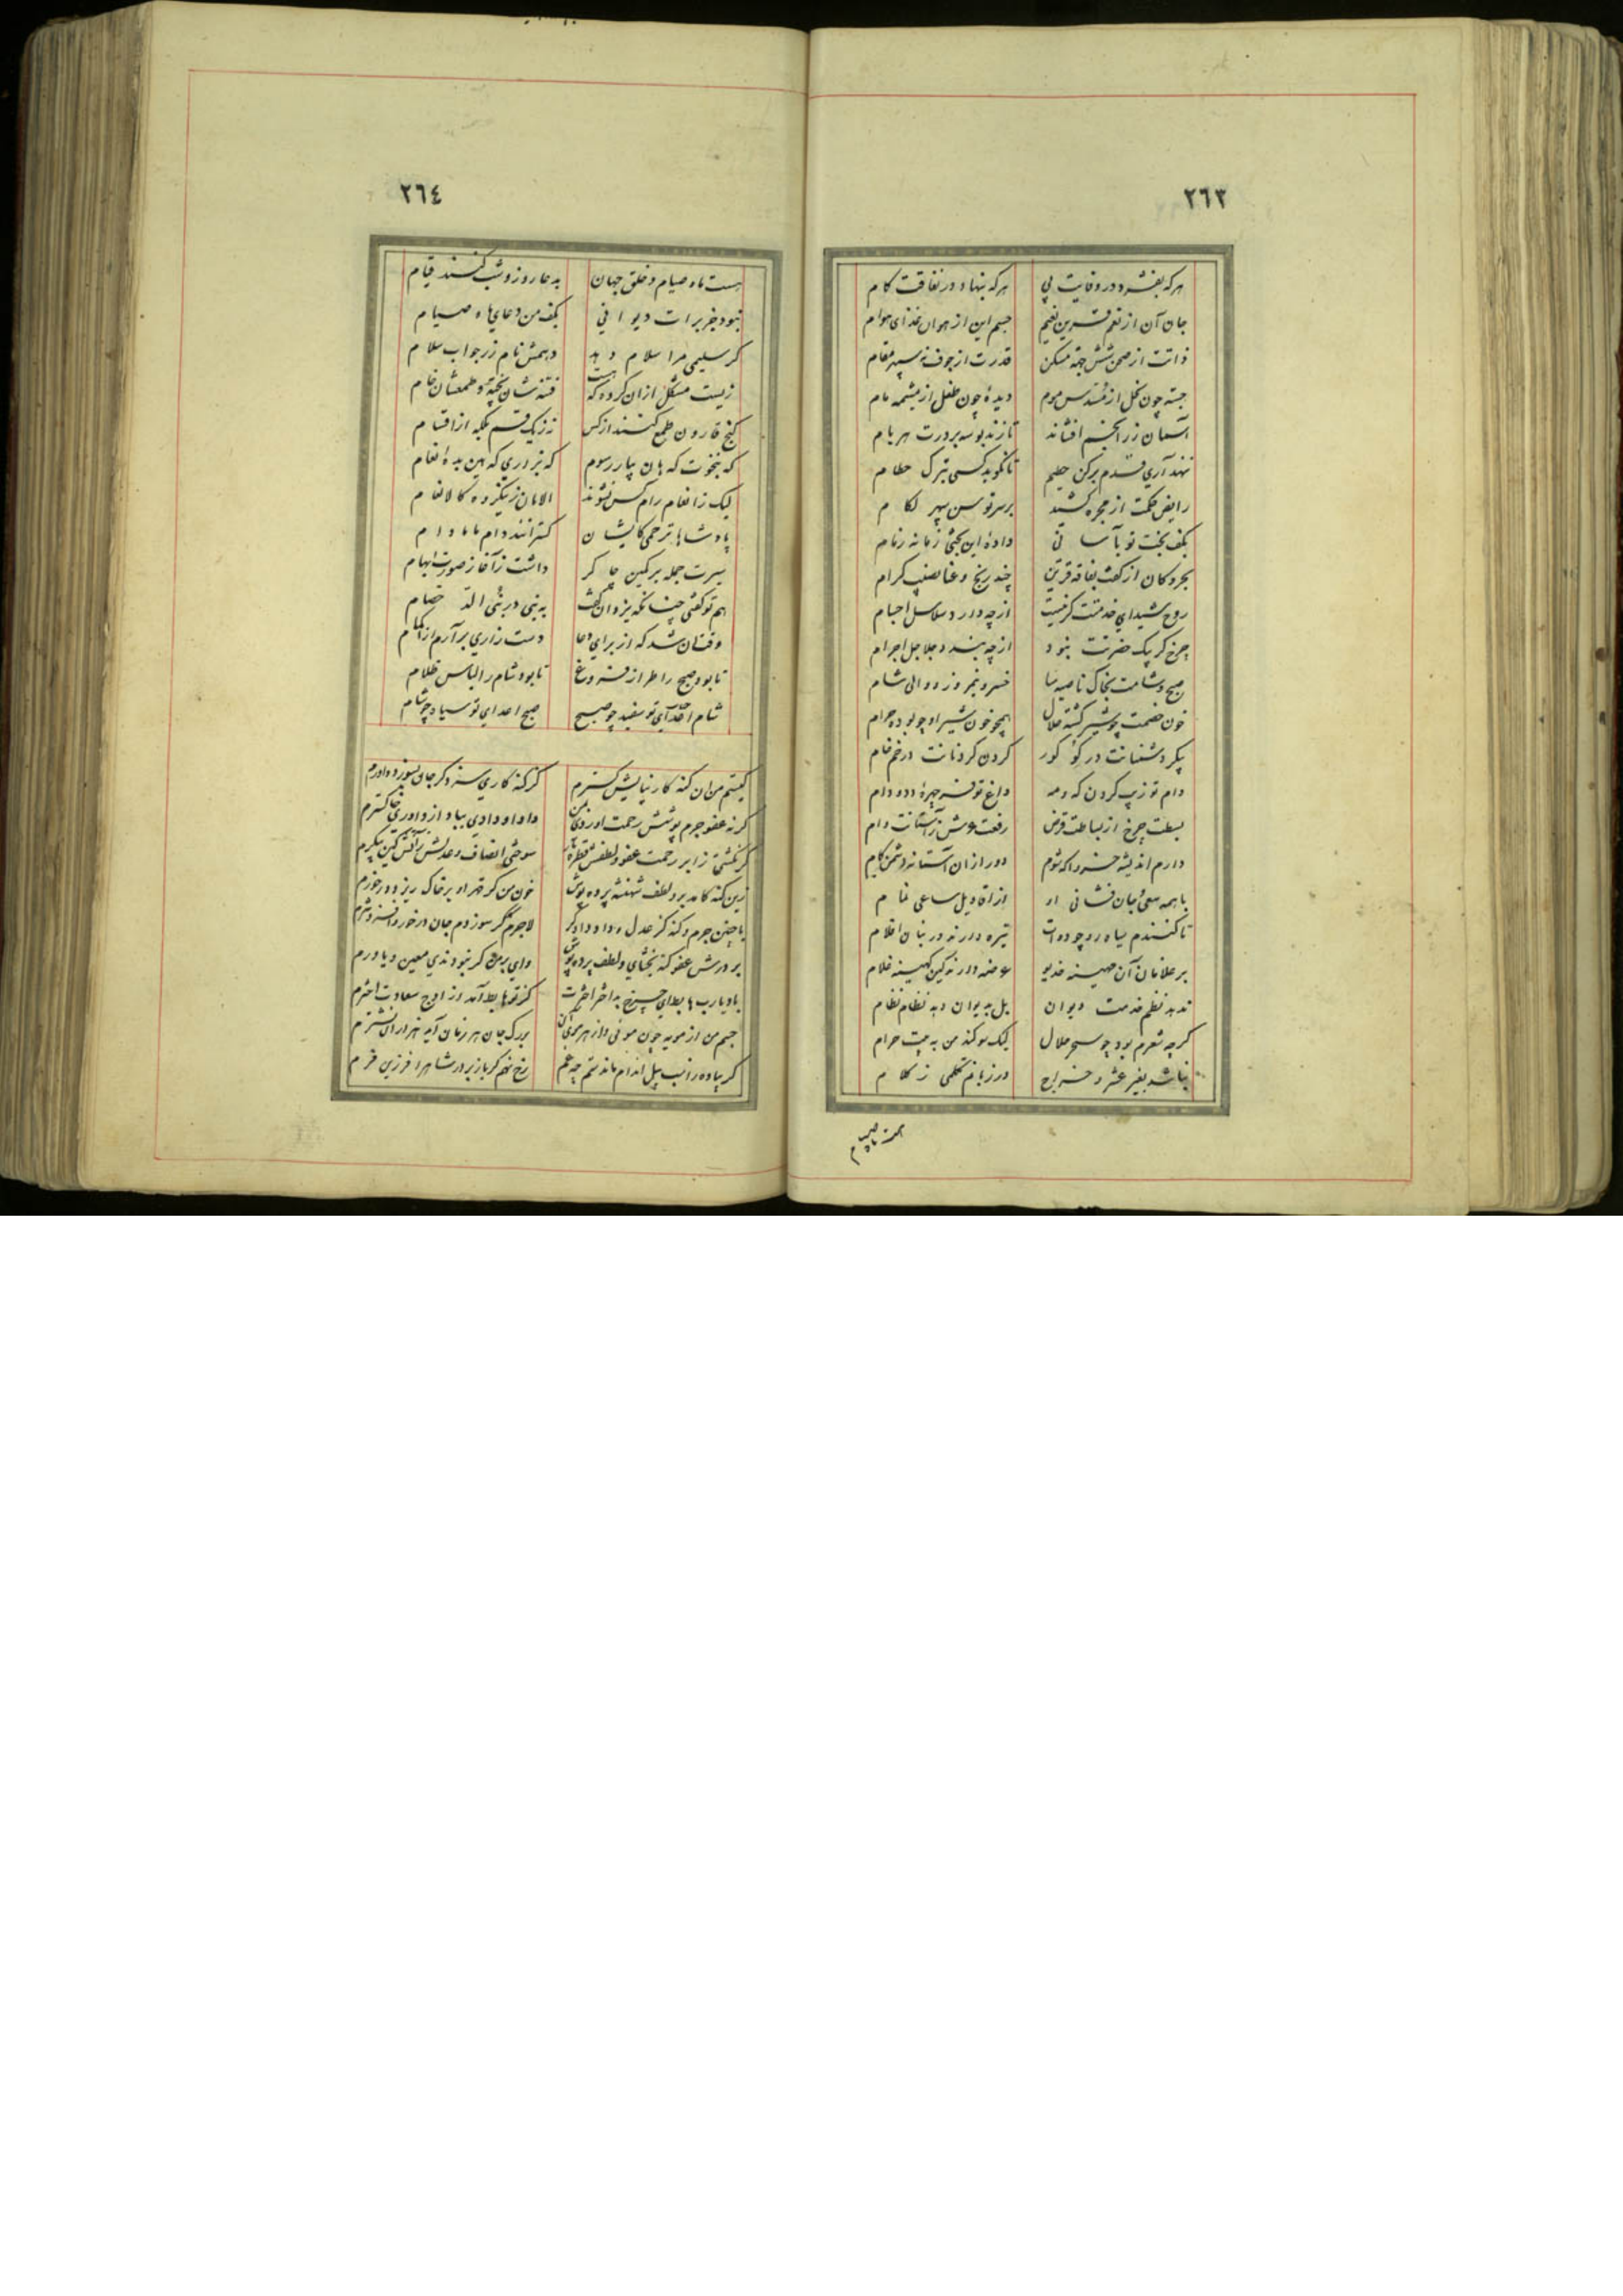 ٢٦٣
هر که بفشرد در وفایت پی هر که بنهاد در نفاقت کام
جان آن از نعم قرین نعیم جسم این از هوان غذای هوام
ذاتت از صحن شش جهة مسکن قدرت از جوف نه سپهر مقام
جسته چون نحل از مسدس موم دیدهٔ چون طفل از مشیمه مام
آسمان زر انجم افشاند تا زند بوسه بر درت هر بام
ننهد آری قدم برکن حطیم تا نگوید کسی بترک حطام
رایض حکمت از مجره کشید بر سر توسن سپهر لگام
بکف بخت تو بآسانی داده این بختی زمانه زمام
بحر و کان از کفت بفاقه قرین چند رنج و عنا نصیب کرام
روح شیدای خدمتت گر نیست از چه دارد سلاسل اجسام
چرخ گر پیک حضرتت نبود از چه بندد جلاجل اجرام
صبح و شامت بخاک ناصیه سا خسرو نیمروز و والی شام
خون خصمت چو شیر گشته حلال همچو خون شیر او چو بوده حرام
پیکر دشمنانت در گو گور گردن گردنانت در خم خام
دام تو زیب گردن که و مه داغ تو فر چهرهٔ دد و دام
بسطت چرخ از بساطت قرض رفعت عرش ز آستانت وام
دارم اندیشه خسروا که شوم دور از آن آستانه دشمن کام
با همه سعی و جان فشانی از از اقاویل ساعی نمام
تا کنندم سیاه رو چو دوات تیره دارند در بنان اقلام
بر غلامان آن مهینه خدیو عرضه دارند کین کهینه غلام
ندهد نظم خدمت دیوان بل به دیوان دهد نظام نظام
گر چه شعرم بود چو سحر حلال لیک سوگند من به بیت حرام
نباشد بغیر عشر و خراج در زبانم تکلمی ز کلام
هست ماه صیام
٢٦٤
هست ماه صیام و خلق جهان به دعا روز و شب کنند قیام
نبود جز برات دیوانی بکف من دعای ماه صیام
گر سلیمی مرا سلام دهد دهمش نام زر جواب سلام
زیست مشکل ازان گروه که هست فتنه شان پخته و طمعشان خام
گنج قارون طمع کنند از کس نه ز یک قسم بلکه از اقسام
که بنخوت که هان بیار رسوم که بزوری که هین بده انعام
لیک ز انعام رام کس نشوند الامان زین گروه کالانعام
پادشاها ترحمی کایشان گسترانند دام مادام
سیرت جمله بر کمین چاکر داشت ز آغاز صورت ابهام
هم تو گفتی چنانکه یزدان گفت به نبی در نبی الد خصام
وقت آن شد که از برای دعا دست زاری بر آرم از اکمام
تا بود صبح را طراز فروغ تا بود شام را لباس ظلام
شام احبّای تو سفید چو صبح صبح اعدای تو سیاه چو شام
کیستم من آن گنه کار نیایش گسترم کز گنه کاری سزد گر جان بسوزد داورم
گر نه عفو جرم پوشش رحمت آوردی بمن داد او دادی بباد از داوری خاکسترم
گر نگشتی ز ابر رحمت عفو و لطفش قطره بار سوختی انصاف و عدلش ز آتش کین پیکرم
زین گنه کامد بر و لطف شهنشه پرده پوش خون من گر قهر او بر خاک ریزد در خورم
با چنین جرم و گنه کز عدل و داد دادگر لاجرم گر سوزدم جان در خور و افسردنترم
بر درش عفو گنه بخشای و لطف پرده پوش وای بر من گر نبودندی معین و یاورم
باد یا رب هابط ای چرخ بد اختر اخترت کز تو هابط آمد از اوج سعادت اخترم
جسم من از مویه چون موئی و از هر موی آن بر رگ جان هر زمان آید هزاران نشترم
گر پیاده راند اسب پیل اندام ماندستم چه غم رخ نهم گر باز بر در شاه را فرزین فرم